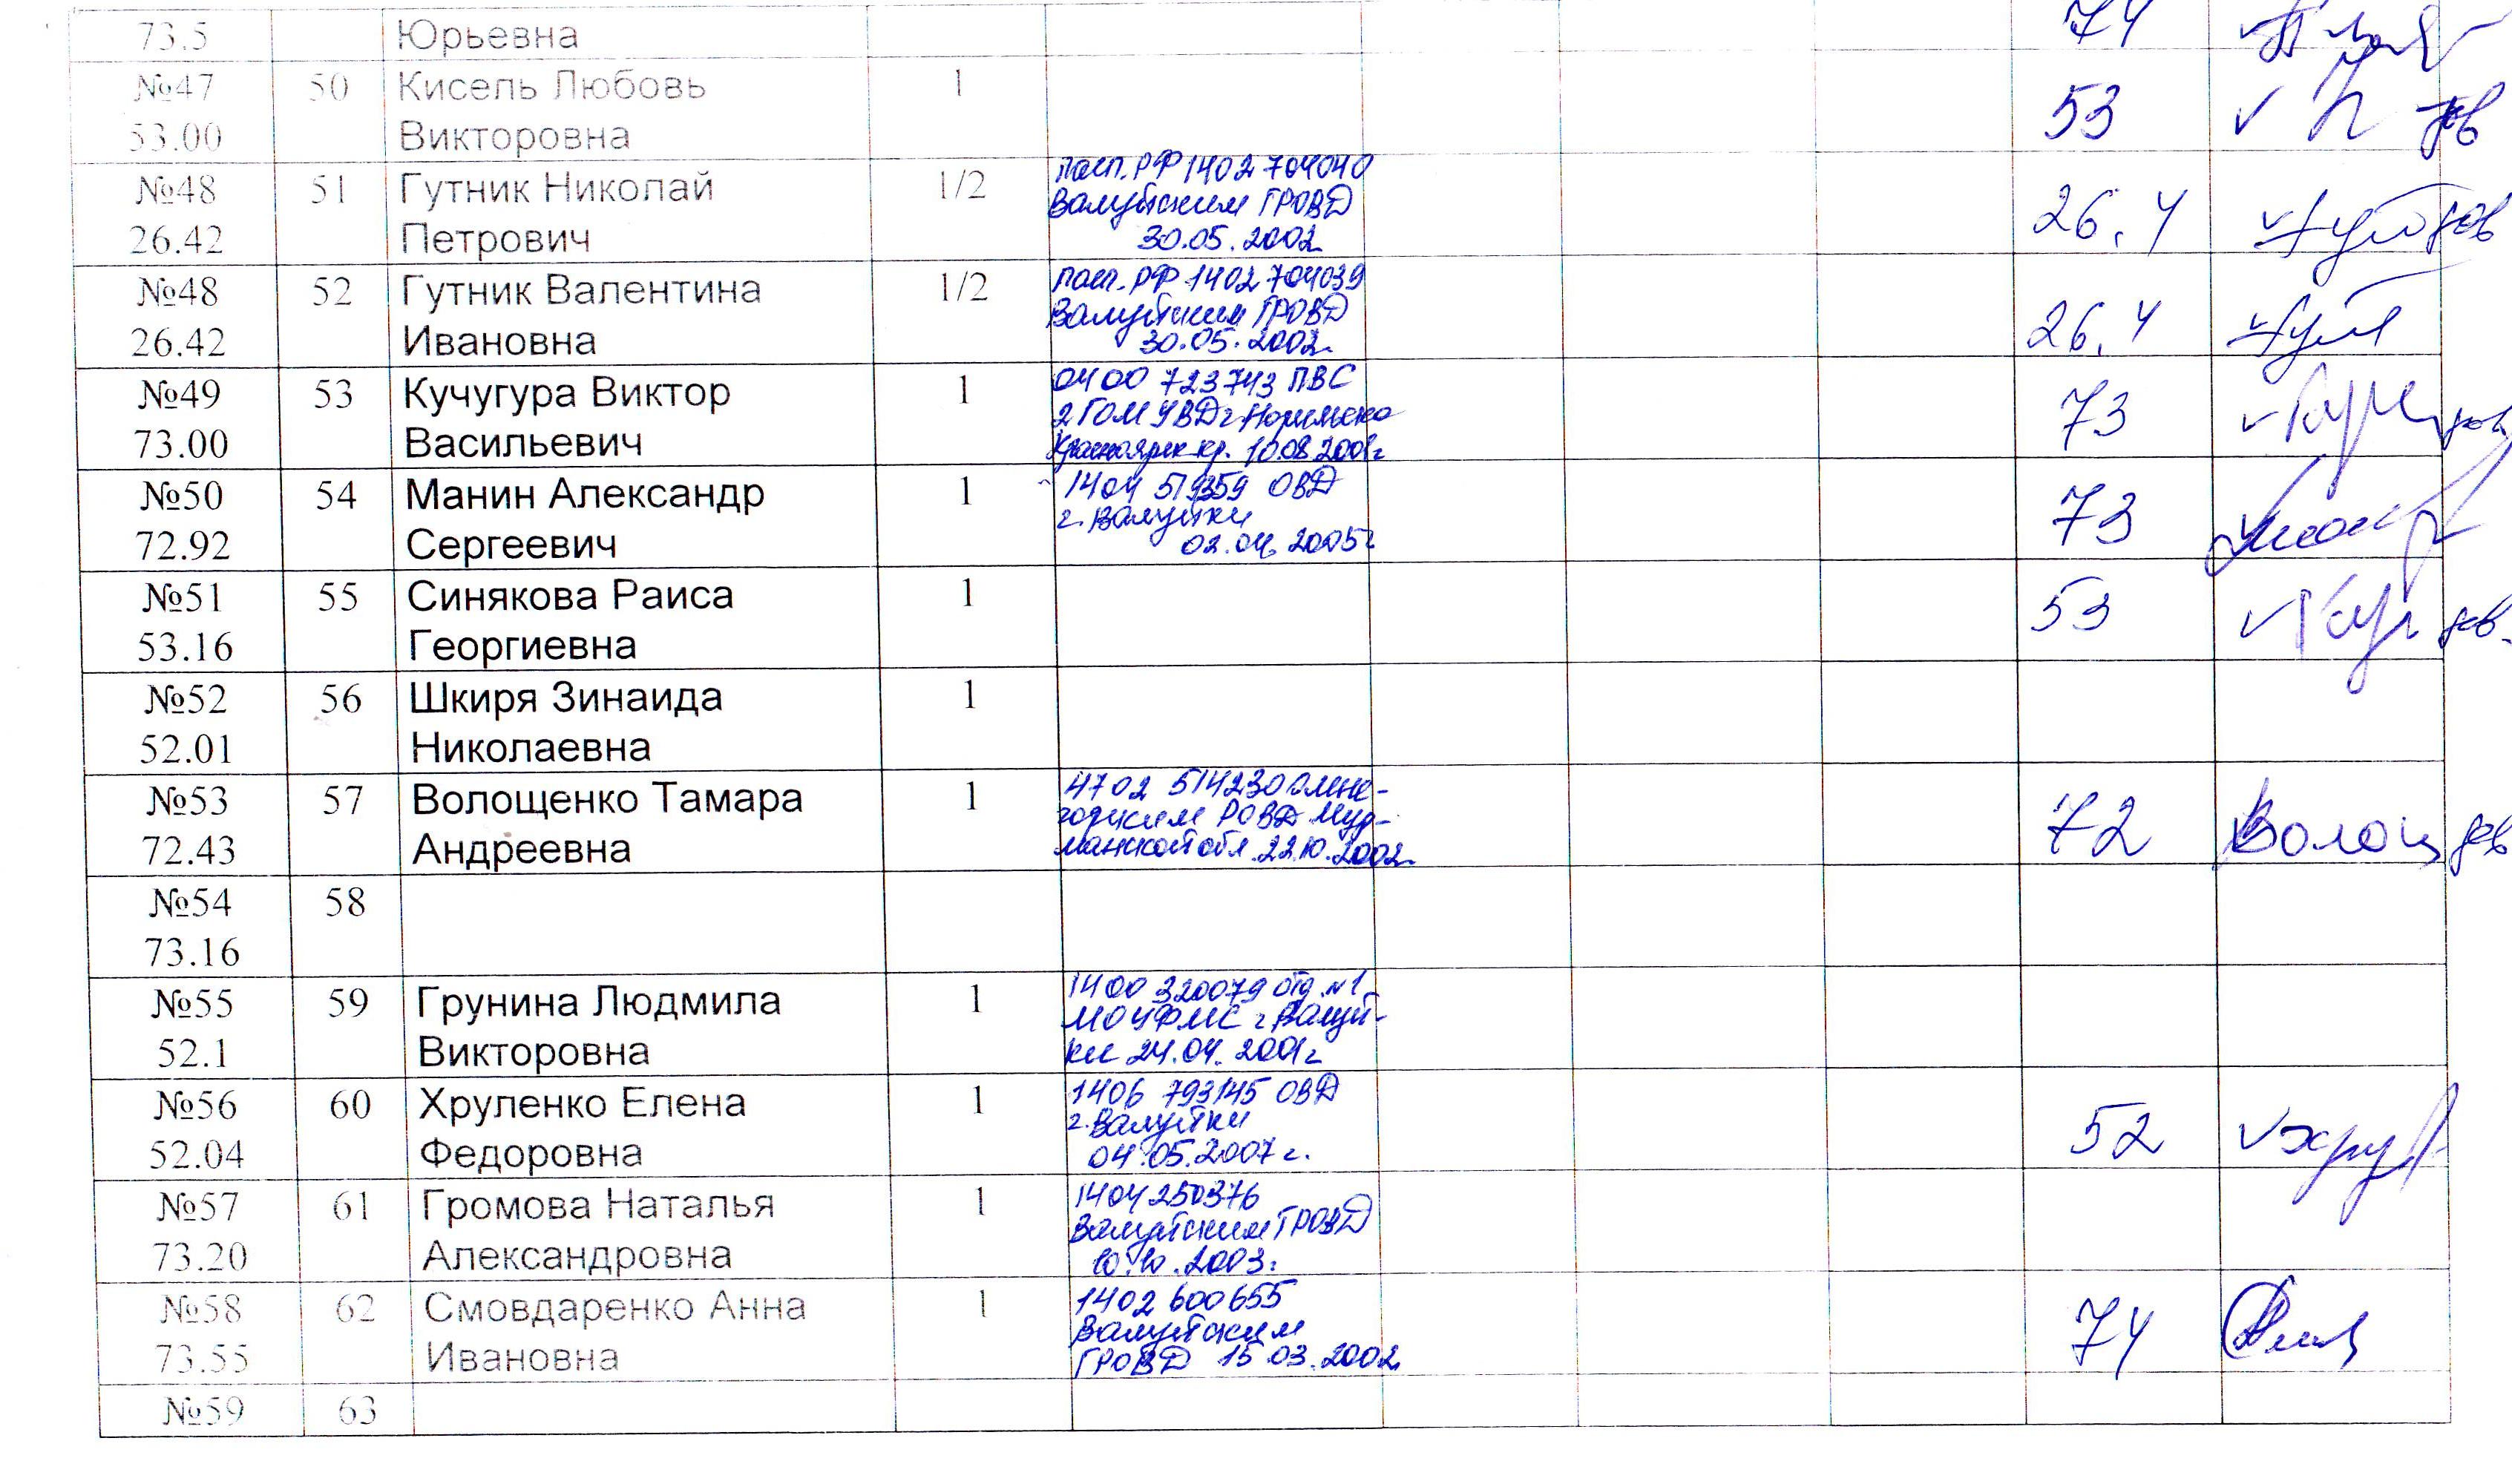 73.5 Юрьевна 74
№47 50 Кисель Любовь 1
53.00 Викторовна 53
№48 51 Гутник Николай 1/2 26.4
26.42 Петрович
пасп. РФ 1402 704040
Валуйским ГРОВД
30.05.2002
№48 52 Гутник Валентина 1/2 26.4
26.42 Ивановна
пасп. РФ 1402 704039
Валуйским ГРОВД
30.05.2002г.
№49 53 Кучугура Виктор 1 73
73.00 Васильевич
0400 723743 ПВС
2 ГОМ УВД г Норильска
Красноярск кр. 10.08.2001г
№50 54 Манин Александр 1 73
72.92 Сергеевич
1404 519359 ОВД
г. Валуйки
02.04.2005г
№51 55 Синякова Раиса 1 53
53.16 Георгиевна
№52 56 Шкиря Зинаида 1
52.01 Николаевна
№53 57 Волощенко Тамара 1 72 Волощ
72.43 Андреевна
4702 514230 Олене-
горским РОВД Мур-
манской обл. 22.10.2002г
№54 58
73.16
№55 59 Грунина Людмила 1
52.1 Викторовна
1400 320079 отд. №1
МОУФМС г Валуй-
ки 24.04. 2001г
№56 60 Хруленко Елена 1 52
52.04 Федоровна
1406 793145 ОВД
г. Валуйки
04.05.2007 г.
№57 61 Громова Наталья 1
73.20 Александровна
1404 250376
Валуйским ГРОВД
10.10.2003г
№58 62 Смовдаренко Анна 1 74
73.55 Ивановна
1402 600655
Валуйским
ГРОВД 15 03.2002
№59 63